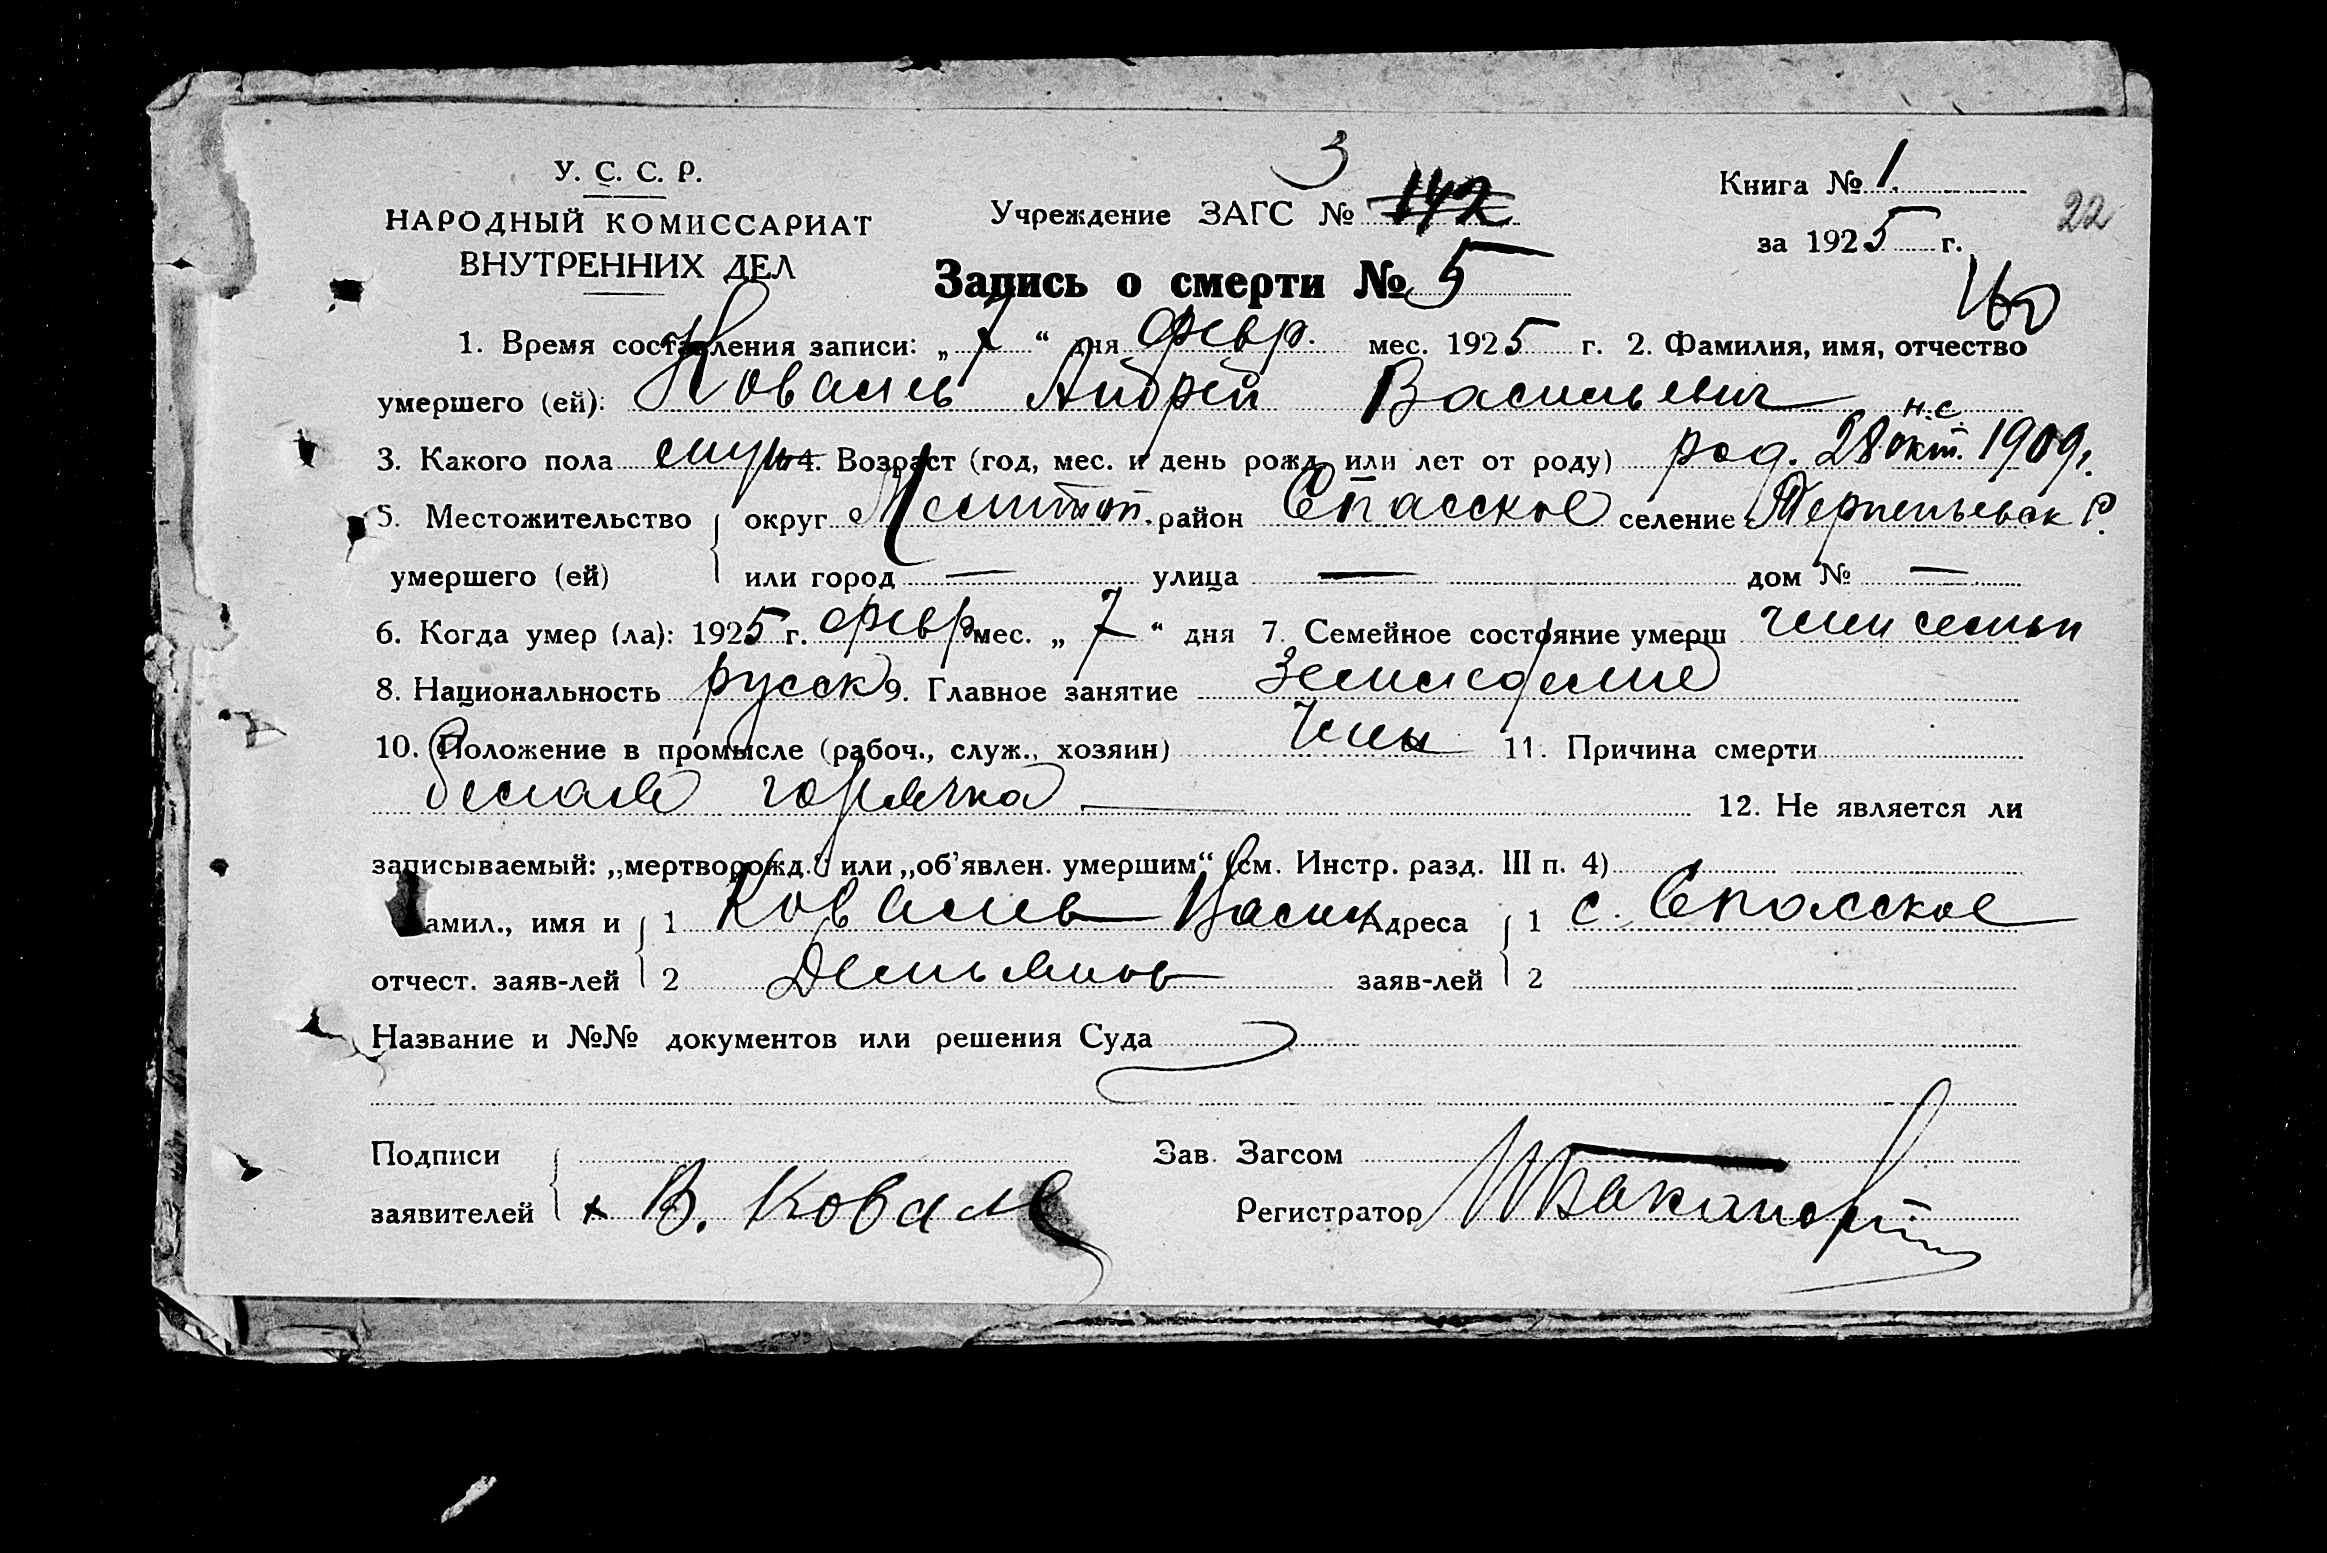 У. С. С. Р.
НАРОДНЫЙ КОМИССАРИАТ
ВНУТРЕННИХ ДЕЛ
3
Учреждение ЗАГС № 142
Книга № 1
за 1925 г.
22
Запись о смерти № 5
1. Время составления записи: „7“ дня февр. мес. 1925 г. 2. Фамилия, имя, отчество
умершего (ей): Ковалев Андрей Васильевич
н.с.
3. Какого пола муж 4. Возраст (год, мес. и день рожд. или лет от роду) род. 28 окт. 1909 г.
5. Местожительство округ Мелитоп. район Спасское селение Терпеньевск Р.
умершего (ей) или город — улица — дом № —
6. Когда умер (ла): 1925 г. февр мес. „7“ дня 7. Семейное состояние умерш член семьи
8. Национальность русск 9. Главное занятие Земледелие
10. Положение в промысле (рабоч., служ., хозяин) Член 11. Причина смерти
белая горячка — 12. Не является ли
записываемый: „мертворожд.“ или „об'явлен. умершим“ (см. Инстр. разд. III п. 4)
амил., имя и 1 Ковалев Васил Адреса 1 с. Спасское
отчест. заяв-лей 2 Демьянов заяв-лей 2
Название и №№ документов или решения Суда
Подписи Зав. Загсом —
заявителей х В. Ковале Регистратор